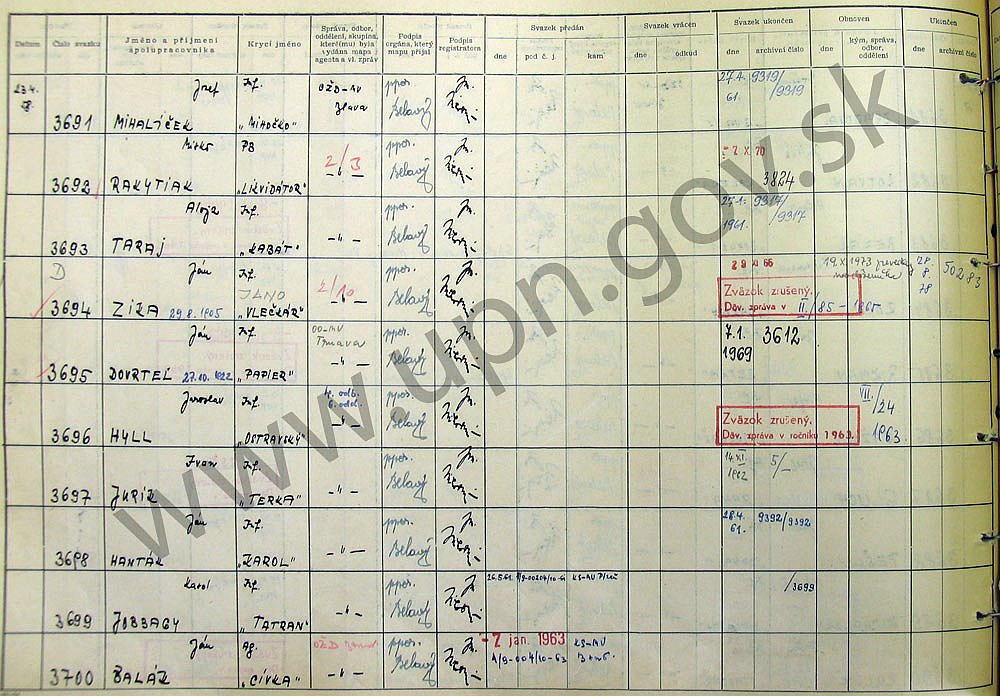 Datum
Číslo svazku
Jméno a příjmení
spolupracovníka
Krycí jméno
Správa, odbor,
oddělení, skupina,
které(mu) byla
vydána mapa
agenta a vl. zpráv
Podpis
orgána, který
mapu přijal
Podpis
registratora
Svazek předán
dne
pod č. j.
kam
Svazek vrácen
dne
odkud
Svazek ukončen
dne
archivní číslo
Obnoven
dne
kým, správa,
odbor,
oddělení
Ukončen
dne
archivní číslo
23.4.
3691
Jozef
MIHALÍČEK
Inf.
"MIHOČKO"
OŽD-MV
Ilava
ppor.
Belavý
27.4.
61.
9319/
/9319
3692
Mirko
RAKYTIAK
PB
"LIKVIDÁTOR"
2/3
-"-
ppor.
Belavý
- 7 X. 70
3824
3693
Alojz
TARAJ
Inf.
"KABÁT"
-"-
ppor.
Belavý
27.1.
1961.
9317/
/9317
D
3694
Ján
ZIKA 29.8.1905
Inf.
JANO
"VLEČKÁR"
2/10
-"-
ppor.
Belavý
29 XI 66
Zväzok zrušený.
Dáv. zpráva v II./85 - 1965
19.X.1973
28.
8
78
50283
3695
Ján
DOVRTEL 27.10.1922
Inf.
"PAPIER"
OO-MV
Trnava
-"-
ppor.
Belavý
7.1.
1969
3612
3696
Jaroslav
HYLL
Inf.
"OSTRAVSKÝ"
4. odb.
6. odd.
-"-
ppor.
Belavý
Zväzok zrušený.
Dáv. zpráva v ročníku 1963.
VII./24
1963
3697
Ivan
JURÍK
Inf.
"TERKA"
-"-
ppor.
Belavý
14.XI.
1962
5/-
3698
Ján
HANTÁK
Inf.
"KAROL"
-"-
ppor.
Belavý
28.4.
61.
9392/9392
3699
Karol
JOBBAGY
Inf.
"TATRAN"
-"-
ppor.
Belavý
26.5.61
A/9-00204/10-61
KS-MV
/3699
3700
Ján
BALÁK
Ag.
"CÍVKA"
OŽD
-"-
ppor.
Belavý
- 7 jan. 1963
A/9-004/10-63
KS-MV
Brno.
www.upn.gov.sk